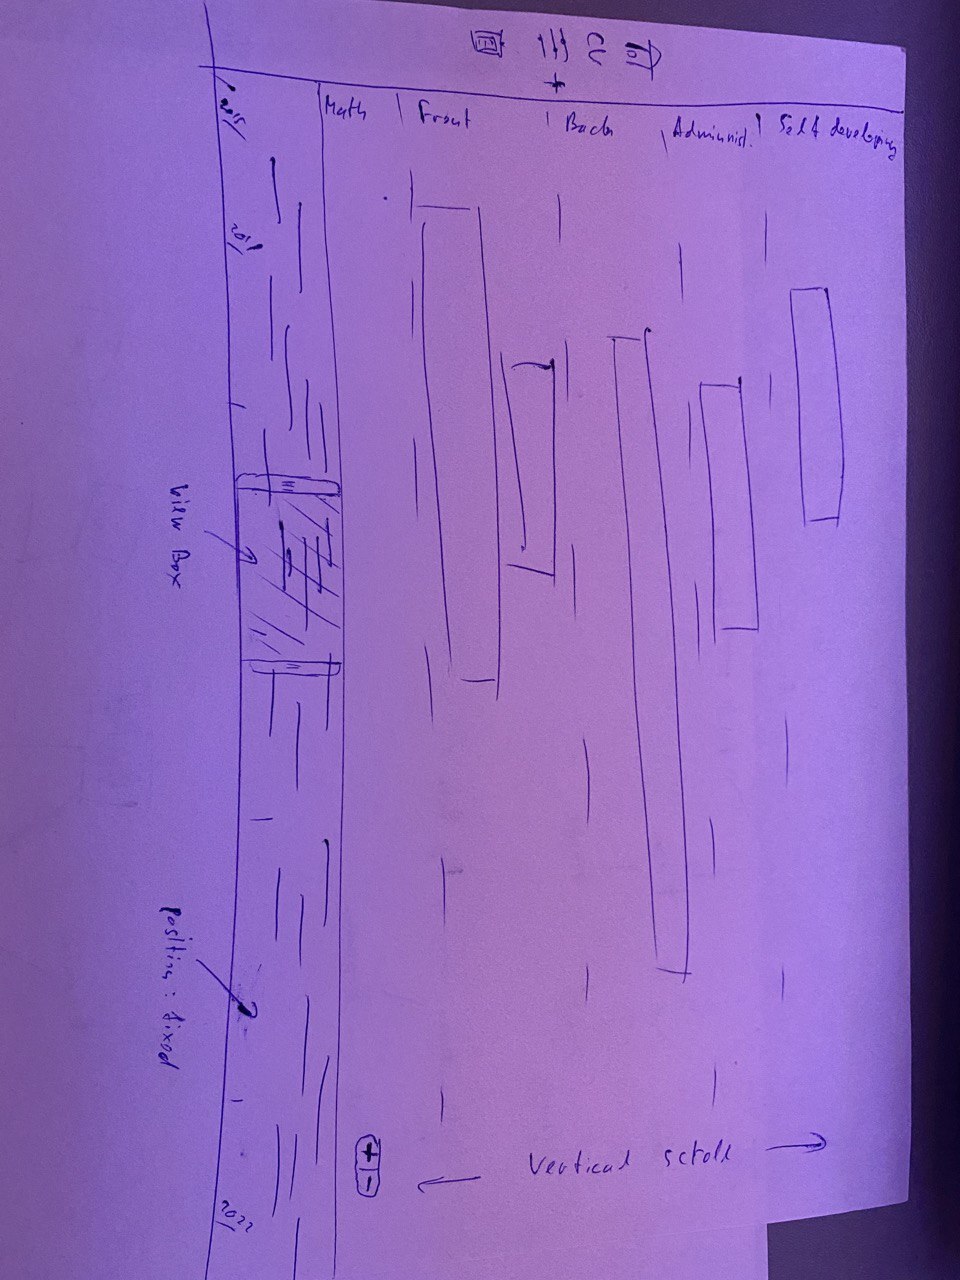 CV
+
Math
Front
Back
Administ.
Self developing
2015
2022
View Box
position: fixed
+
-
Vertical scroll